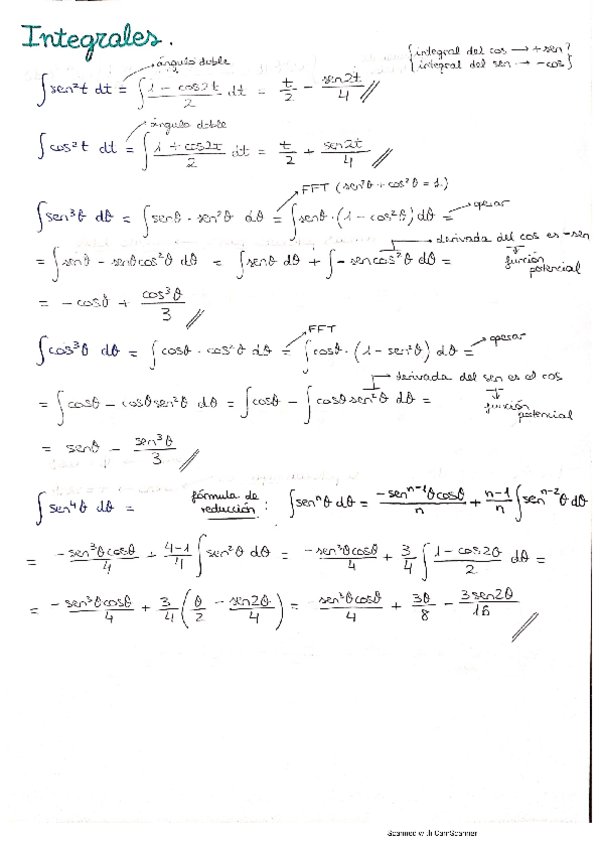 Integrales.
ángulo doble
{integral del cos → + sen}
{integral del sen → - cos}
∫sen²t dt = ∫ (1 - cos2t)/2 dt = t/2 - sen2t/4 //
ángulo doble
∫cos²t dt = ∫ (1 + cos2t)/2 dt = t/2 + sen2t/4 //
FFT (sen²θ + cos²θ = 1.)
∫sen³θ dθ = ∫senθ · sen²θ dθ = ∫senθ · (1 - cos²θ) dθ = operar
derivada del cos es -sen
= ∫senθ - senθcos²θ dθ = ∫senθ dθ + ∫-sencos²θ dθ = función potencial
= -cosθ + cos³θ/3 //
FFT
∫cos³θ dθ = ∫cosθ · cos²θ dθ = ∫cosθ · (1 - sen²θ) dθ = operar
derivada del sen es el cos
= ∫cosθ - cosθsen²θ dθ = ∫cosθ - ∫cosθsen²θ dθ = función potencial
= senθ - sen³θ/3 //
∫sen⁴θ dθ = fórmula de reducción: ∫senⁿθ dθ = (-senⁿ⁻¹θcosθ)/n + (n-1)/n ∫senⁿ⁻²θ dθ
= (-sen³θcosθ)/4 + (4-1)/4 ∫sen²θ dθ = (-sen³θcosθ)/4 + 3/4 ∫ (1 - cos2θ)/2 dθ =
= (-sen³θcosθ)/4 + 3/4 (θ/2 - sen2θ/4) = (-sen³θcosθ)/4 + 3θ/8 - 3sen2θ/16 //
Scanned with CamScanner